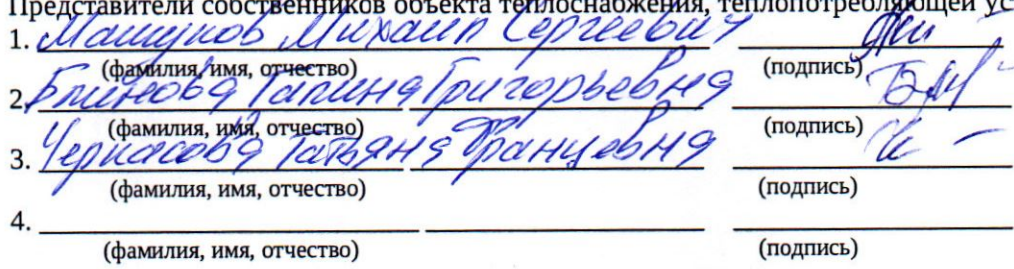 Представители собственников объекта теплоснабжения, теплопотребляющей ус
1. Машуков Михаил Сергеевич
(фамилия, имя, отчество) (подпись)
2. Блинова Галина Григорьевна
(фамилия, имя, отчество) (подпись)
3. Черкасова Татьяна Францевна
(фамилия, имя, отчество) (подпись)
4.
(фамилия, имя, отчество) (подпись)